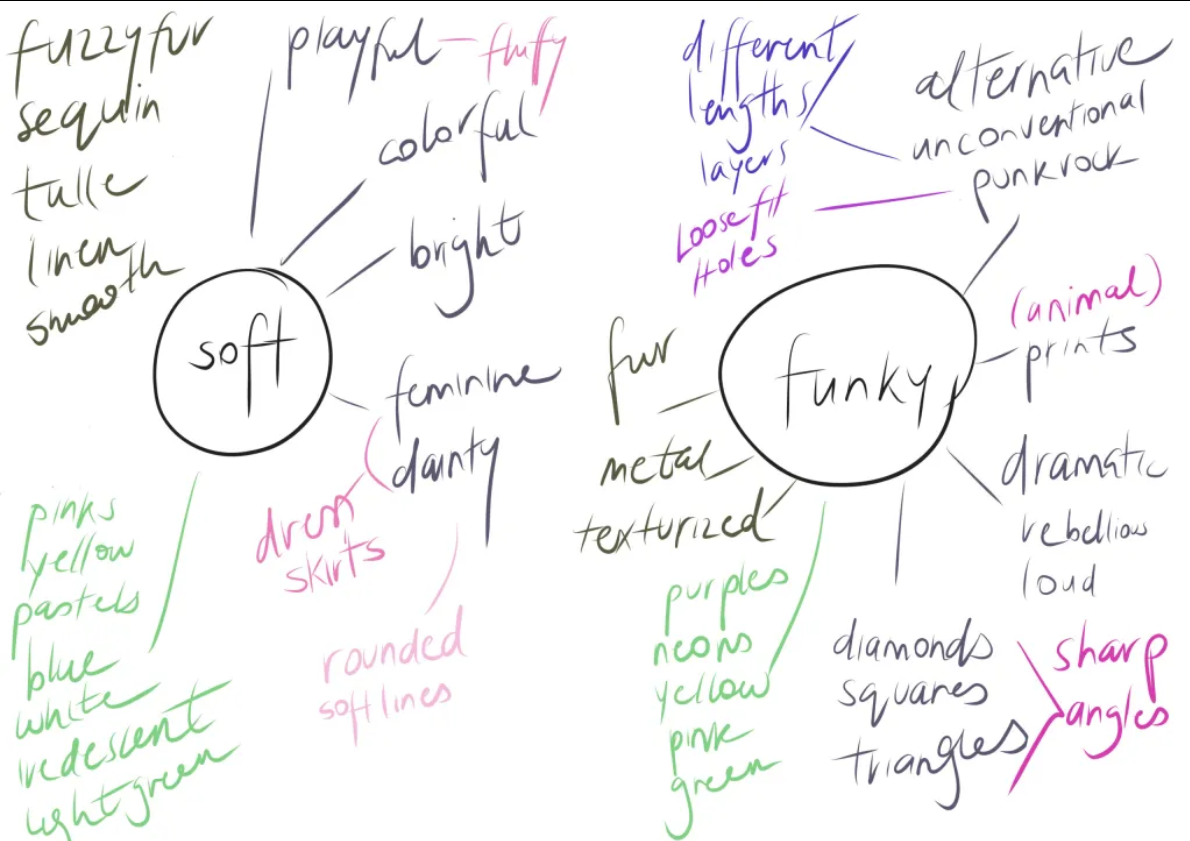 fuzzyfur
sequin
tulle
linen
smooth
playful
flufy
colorful
bright
soft
feminine
dainty
dress
skirts
rounded
soft lines
pinks
yellow
pastels
blue
white
iredescent
light green
different
lengths
layers
Loose fit
Holes
alternative
unconventional
punkrock
(animal)
prints
funky
fur
metal
texturized
dramatic
rebellious
loud
purples
neons
yellow
pink
green
diamonds
squares
triangles
sharp
angles